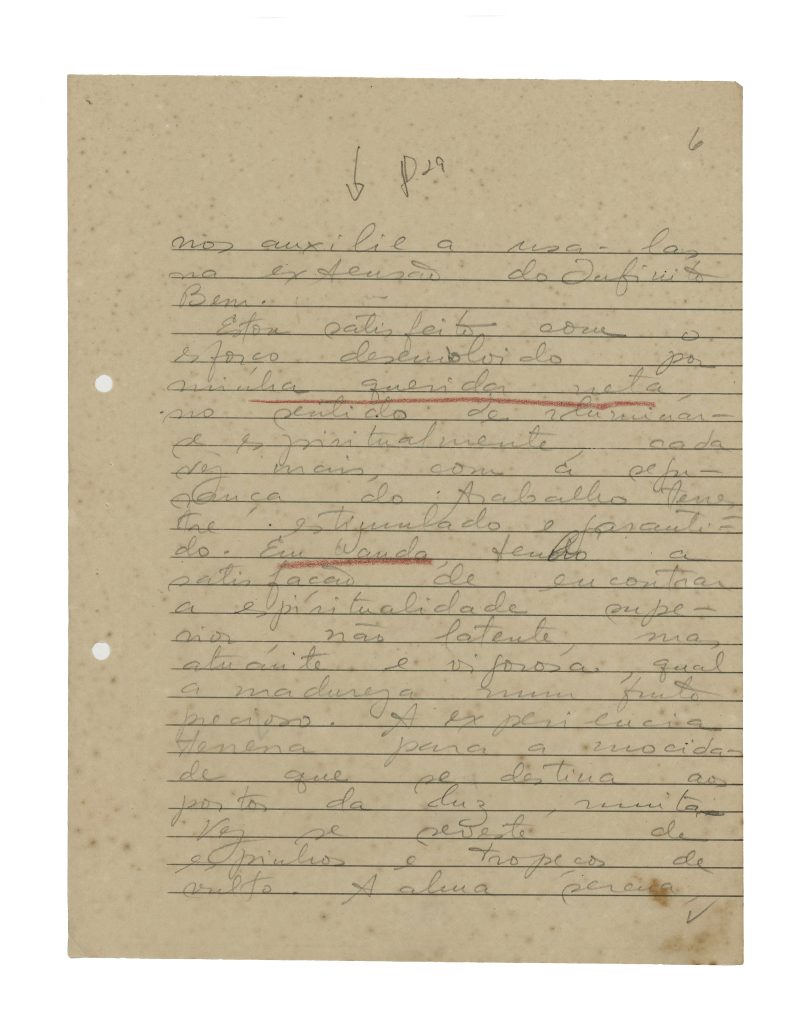 6
p 29
nos auxilie a usa-las
na extensão do Infinito
Bem.
Estou satisfeito com o
esforço desenvolvido por
minha querida neta,
no sentido de iluminar-
se espiritualmente, cada
vez mais, com a segu-
rança do trabalho terres
tre estimulado e garanti-
do. Em Wanda, tenho a
satisfação de encontrar
a espiritualidade supe-
rior não latente, mas
atuante e vigorosa, qual
a madureza num fruto
precioso. A experiencia
terrena para a mocida-
de que se destina aos
postos da luz, muita
vez se reveste de
espinhos e tropeços de
vulto. A alma serena,